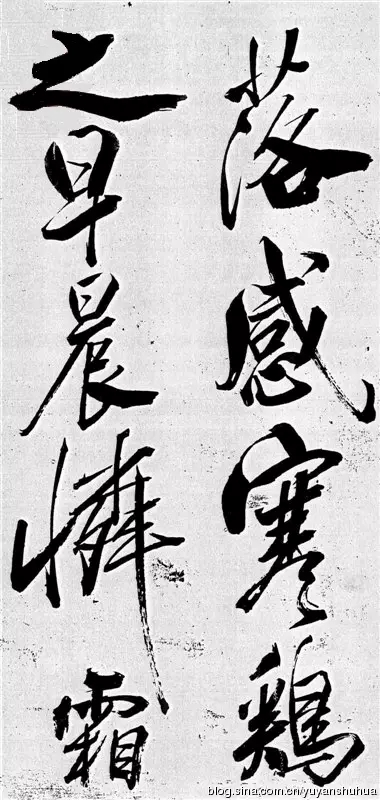 落感寒鷄
之早晨憐霜
blog.sina.com.cn/yuyanshuhua